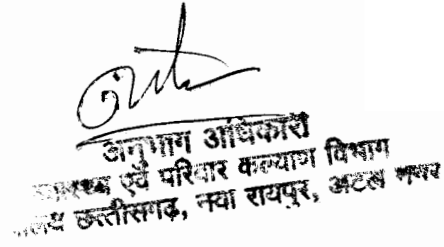 अनुभाग अधिकारी
एवं परिवार कल्याण विभाग
छत्तीसगढ़, नवा रायपुर, अटल नगर